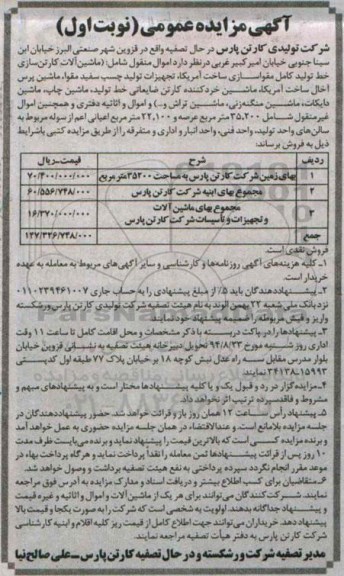 آگهی مزایده عمومی (نوبت اول)
شرکت تولیدی کارتن پارس در حال تصفیه واقع در قزوین شهر صنعتی البرز خیابان ابن
سینا جنوبی خیابان امیرکبیر غربی درنظر دارد اموال منقول شامل: (ماشین‌آلات کارتن‌سازی
خط تولید کامل مقواسازی ساخت آمریکا، تجهیزات تولید چسب سفید مقوا، ماشین پرس
آخال ساخت آمریکا، ماشین خردکننده کارتن ضایعاتی خط تولید، ماشین چاپ، ماشین
دایکات، ماشین منگنه‌زنی، ماشین تراش و...) و اموال و اثاثیه دفتری و همچنین اموال
غیرمنقول شامل ۳۵،۲۰۰ متر مربع عرصه و ۲۲،۱۰۰ متر مربع اعیانی اعم از سوله مربوط به
سالن‌های واحد تولید، واحد فنی، واحد انبار و اداری و متفرقه را از طریق مزایده کتبی باشرایط
ذیل به فروش برساند:
ردیف شرح قیمت-ریال
۱ بهای زمین شرکت کارتن پارس به مساحت ۳۵۲۰۰ متر مربع ۷۰/۴۰۰/۰۰۰/۰۰۰
۲ مجموع بهای ابنیه شرکت کارتن پارس ۶۰/۵۵۶/۷۴۸/۰۰۰
۳ مجموع بهای ماشین آلات و تجهیزات و تأسیسات شرکت کارتن پارس ۱۶/۳۷۰/۰۰۰/۰۰۰
جمع ۱۴۷/۳۲۶/۷۴۸/۰۰۰
فروش نقدی است.
۱ـ کلیه هزینه‌های آگهی روزنامه‌ها و کارشناسی و سایر آگهی‌های مربوط به معامله به عهده
خریدار است.
۲ـ پیشنهاددهندگان باید ۵٪ از مبلغ پیشنهادی را به حساب جاری ۰۱۱۰۲۳۹۴۶۱۰۰۷
نزد بانک ملی شعبه ۲۲ بهمن آوند به نام هیئت تصفیه شرکت تولیدی کارتن پارس ورشکسته
واریز و فیش مربوطه را ضمیمه پیشنهاد خود نمایند.
۳ـ پیشنهادها را در پاکت دربسته با ذکر مشخصات و محل اقامت کامل تا ساعت ۱۱ وقت
اداری روز شنبه مورخ ۹۴/۸/۲۳ تحویل دبیرخانه هیئت تصفیه به نشانی قزوین خیابان
بلوار مدرس مقابل سه راه عدل نبش کوچه ۱۸ برخیابان پلاک ۷۷ طبقه اول کدپستی
۳۴۱۳۸ـ۱۵۹۹۳ نمایند.
۴ـ مزایده‌گزار در رد و قبول یک و یا کلیه پیشنهادها مختار است و به پیشنهادهای مبهم و
مشروط و فاقد سپرده ترتیب اثر نخواهد داد.
۵ـ پیشنهاد رأس ساعت ۱۲ همان روز باز و قرائت خواهد شد. حضور پیشنهاددهندگان در
جلسه مزایده بلامانع است. و عندالاقتضاء در همان جلسه مزایده حضوری به عمل خواهد آمد
و برنده مزایده کسی است که بالاترین قیمت را پیشنهاد نماید و برنده می‌بایست ظرف مدت
۱۰ روز پس از قرائت پیشنهادها ثمن معامله را نقداً پرداخت نماید و هرگاه پرداخت بهاء در
موعد مقرر انجام نگردد سپرده پرداختی به نفع هیئت تصفیه برداشت و وصول خواهد شد.
۶ـ متقاضیان برای کسب اطلاع بیشتر و دریافت اسناد و مدارک مزایده به آدرس فوق مراجعه
نمایند. شرکت‌کنندگان می‌توانند برای هر یک از ماشین آلات و اموال و اثاثیه و غیره قیمت
و پیشنهاد جداگانه بدهند. اولویت به شخصی است که شرکت را به صورت یکجا و قیمت بالا
پیشنهاد دهد. خریداران می‌توانند جهت اطلاع کامل از قیمت ریز کلیه اقلام و ابنیه کارشناسی
شرکت کارتن پارس به دفتر هیأت تصفیه مراجعه نمایند.
مدیر تصفیه شرکت ورشکسته و در حال تصفیه کارتن پارس ـ علی صالح‌نیا